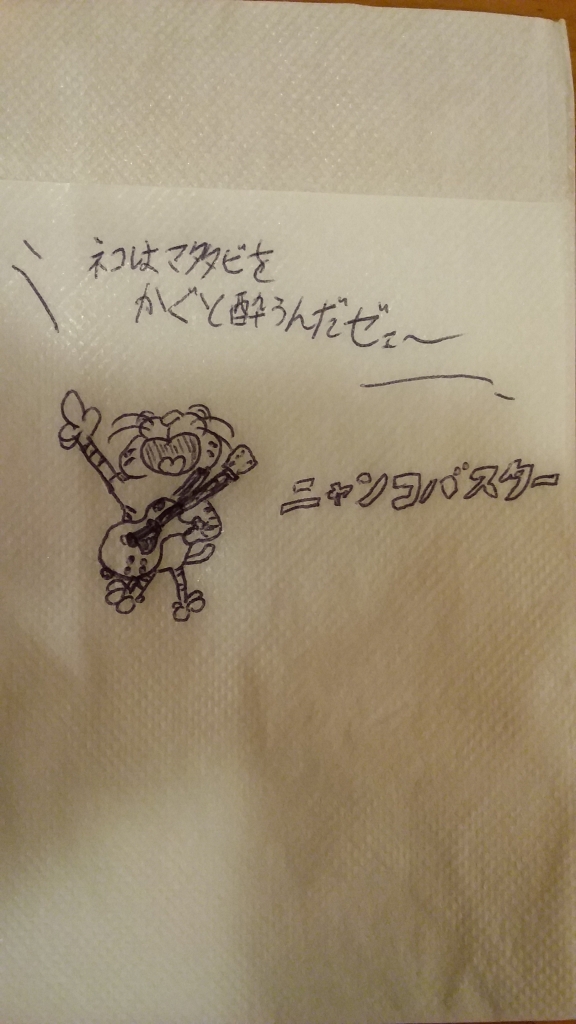 ネコはマタタビを
かぐと酔うんだゼェ〜
ニャンコバスター